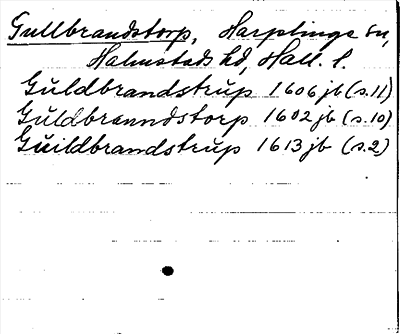 Gullbrandstorp, Harplinge sn,
Halmstads hd, Hall. l.
Guldbrandstrup 1606 jb (s.11)
Guldbranndstorp 1602 jb (s.10)
Guildbrandstrup 1613 jb (s.2)